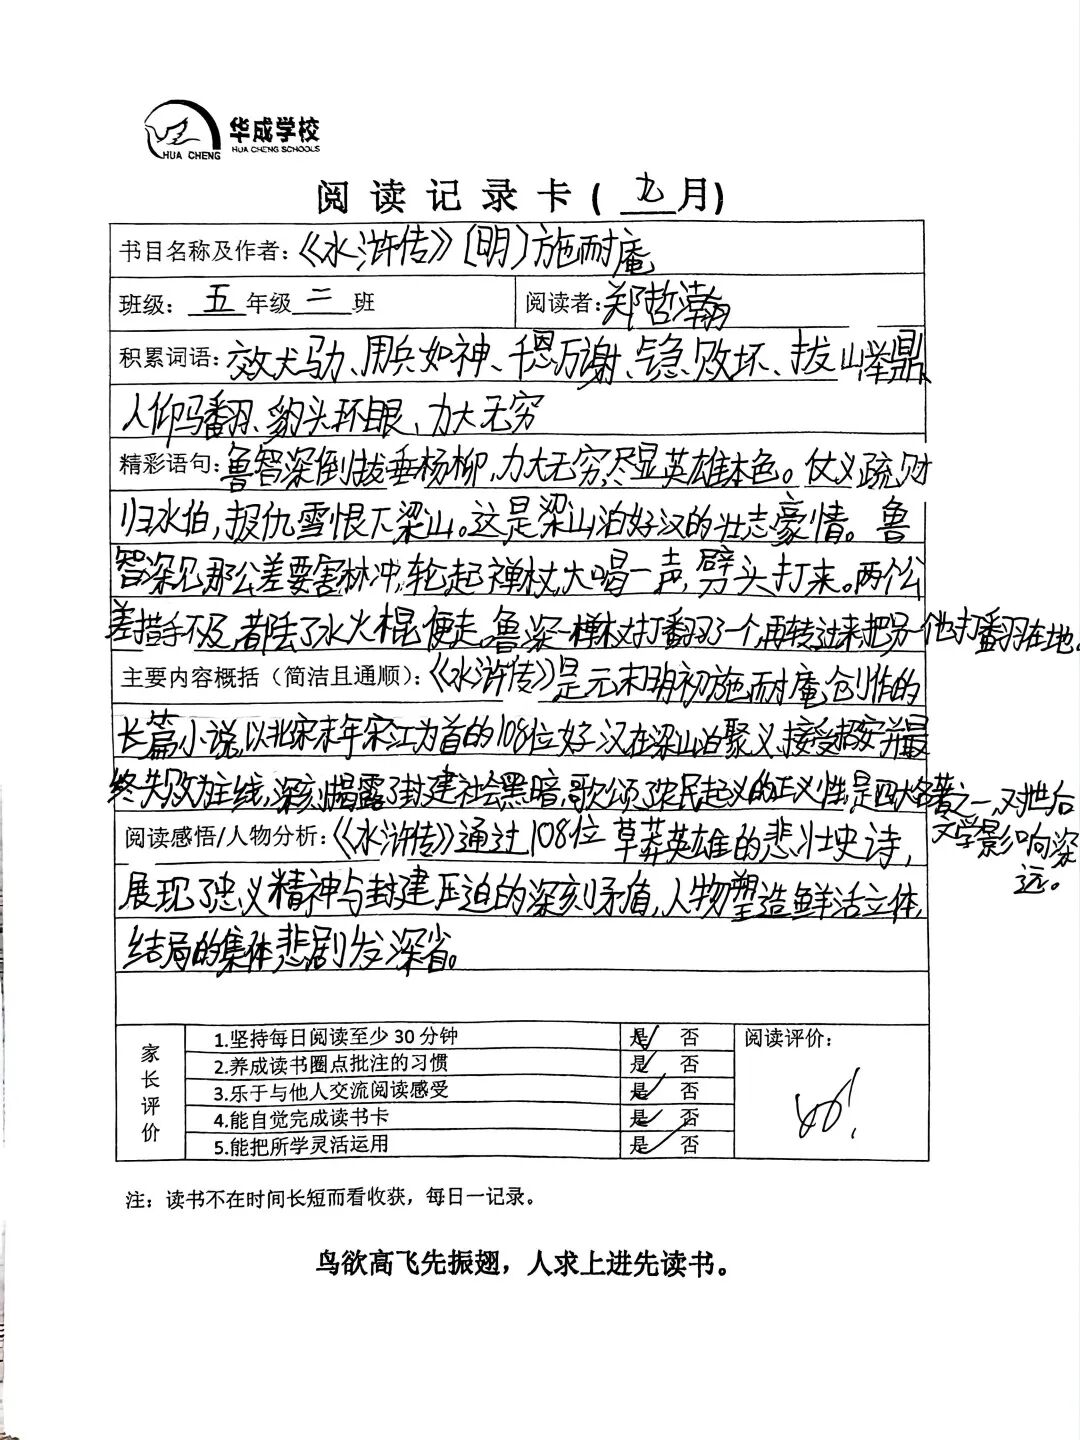 华成学校
HUA CHENG SCHOOLS
HUA CHENG
阅读记录卡(九月)
书目名称及作者:《水浒传》〔明〕施耐庵
班级：五年级二班 阅读者:郑哲瀚
积累词语:效犬马力、用兵如神、千恩万谢、气急败坏、拔山举鼎、
人仰马翻、豹头环眼、力大无穷
精彩语句:鲁智深倒拔垂杨柳,力大无穷,尽显英雄本色。仗义疏财
归水伯,报仇雪恨下梁山。这是梁山泊好汉的壮志豪情。鲁
智深见那公差要害林冲,轮起禅杖,大喝一声,劈头打来。两个公
差措手不及,都 了水火棍便走。鲁深一禅杖打翻了一个,再转过来,把另一他打翻在地。
主要内容概括（简洁且通顺）:《水浒传》是元末明初施耐庵创作的
长篇小说,以北宋末年宋江为首的108位好汉在梁山泊聚义,接受招安并最
终失败为主线,深刻揭露了封建社会黑暗,歌颂了农民起义的正义性,是四大名著之一,对世后
文学影响深
远。
阅读感悟/人物分析:《水浒传》通过108位草莽英雄的悲壮史诗,
展现了忠义精神与封建压迫的深刻矛盾,人物塑造鲜活立体,
结局的集体悲剧发深省。
家长评价
1.坚持每日阅读至少30分钟 是✓ 否
2.养成读书圈点批注的习惯 是✓ 否
3.乐于与他人交流阅读感受 是✓ 否
4.能自觉完成读书卡 是✓ 否
5.能把所学灵活运用 是✓ 否
阅读评价:
注：读书不在时间长短而看收获，每日一记录。
鸟欲高飞先振翅，人求上进先读书。